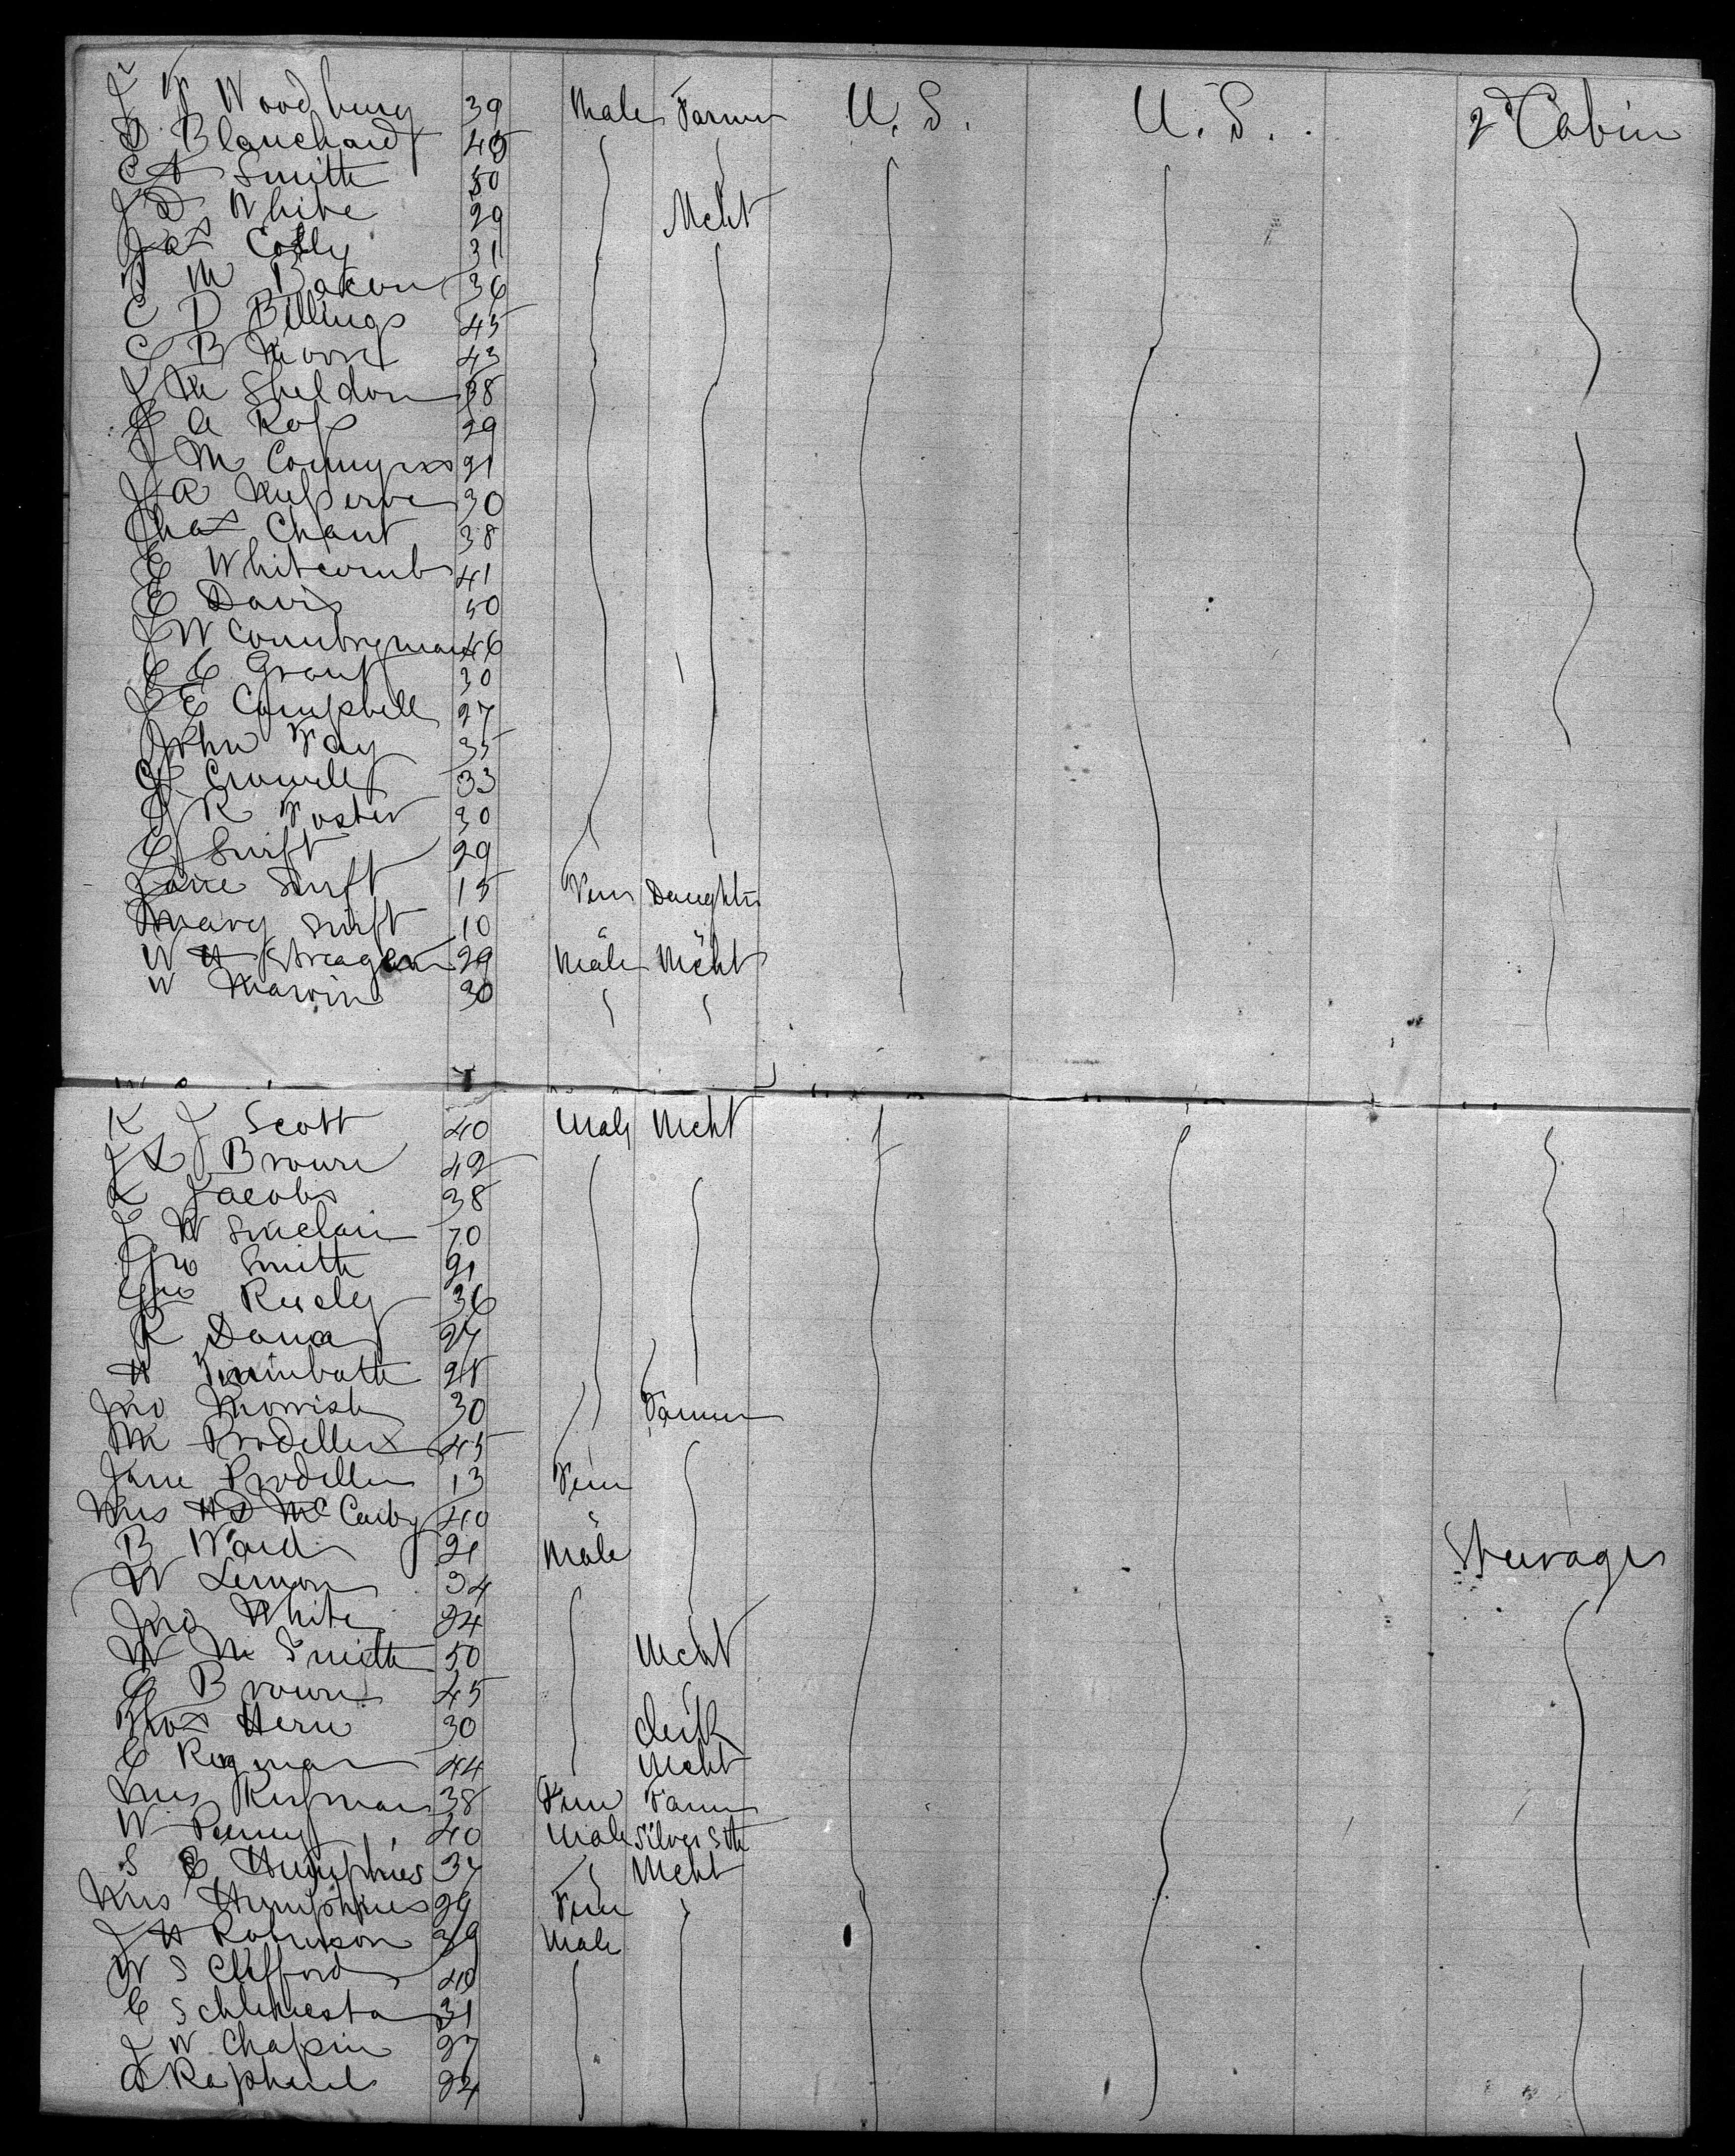 J W Woodbury 39 Male Farmer U.S. U.S. 2d Cabin
D Blanchard 45
C A Smith 50
J D White 29 Mcht
Jas Colly 31
M Bacon 36
C D Billings 45
C B Moore 43
J M Sheldon 38
E A Ross 29
J M Connyers 21
J A 30
Chas Chant 38
E Whitcomb 41
E Davis 50
J W Countryman 46
C E Grant 30
J E Campbell 27
John Fay 35
C Crowell 33
J R Foster 30
E Swift 29
Jane Swift 15 Fem Daughter
Mary Swift 10
W H 29 Male Mcht
W Marvin 30
K J Scott 40 Male Mcht
J L Brown 42
L Jacobs 38
J W Sinclair 70
Geo Smith 21
Geo 36
R Dana 27
H
Jno Morrish 30 Farmer
M 45
Jane 13 Fem
Mrs H D McCarby 40
B Ward 21 Male Steerage
W Lemon 34
Jno White 24
W M Smith 50 Mcht
C Brown 45
Thos Hern 30 Clerk
C 44 Mcht
Mrs 38 Fem Farm
W Penny 40 Male Silver Sth
S B Humphries 37 Mcht
Mrs Humphries 29 Fem
J H Robinson 39 Male
W S Clifford 40
C 31
J W Chapin 27
A Raphael 24